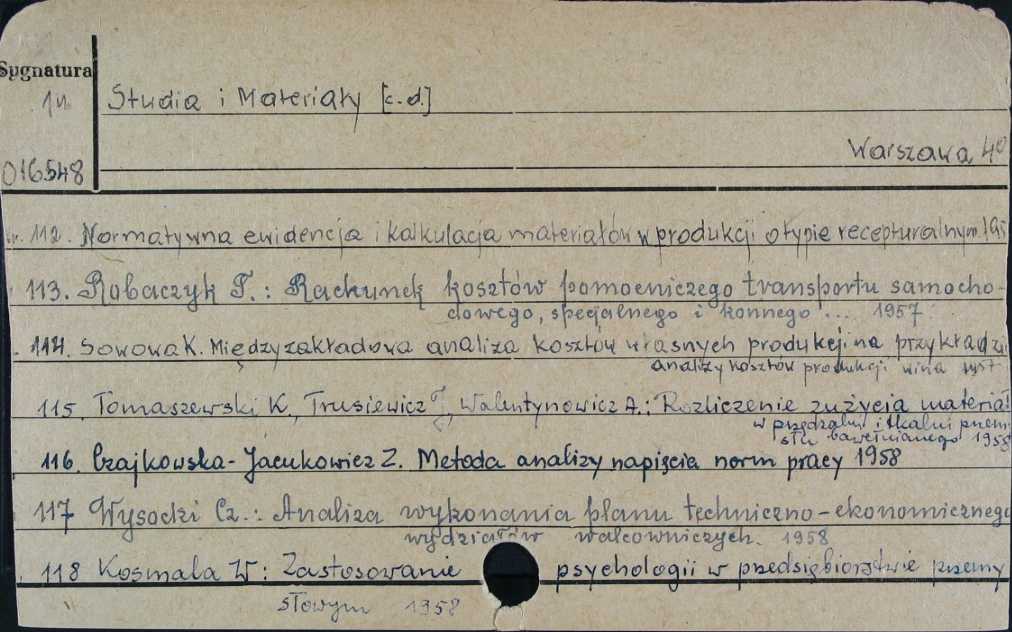 Sygnatura
1n
Studia i Materiały [c.d.]
Warszawa 40
016548
nr. 112. Normatywna ewidencja i kalkulacja materiałów w produkcji o typie recepturalnym. 195
113. Robaczyk T.: Rachunek kosztów pomocniczego transportu samocho-
dowego, specjalnego i konnego ... 1957
114. Sowowa K. Międzyzakładowa analiza kosztów własnych produkcji na przykładzi
analizy kosztów produkcji wina 1957
115. Tomaszewski K., Trusiewicz T., Walentynowicz A.: Rozliczenie zużycia materiał
w przędzalni i tkalni przem-
słu bawełnianego 1958
116. Czajkowska-Jacukowicz Z. Metoda analizy napięcia norm pracy 1958
117 Wysocki Cz.: Analiza wykonania planu techniczno-ekonomicznego
wydziałów walcowniczych. 1958
118 Kosmala W: Zastosowanie psychologii w przedsiębiorstwie przemy
słowym 1958